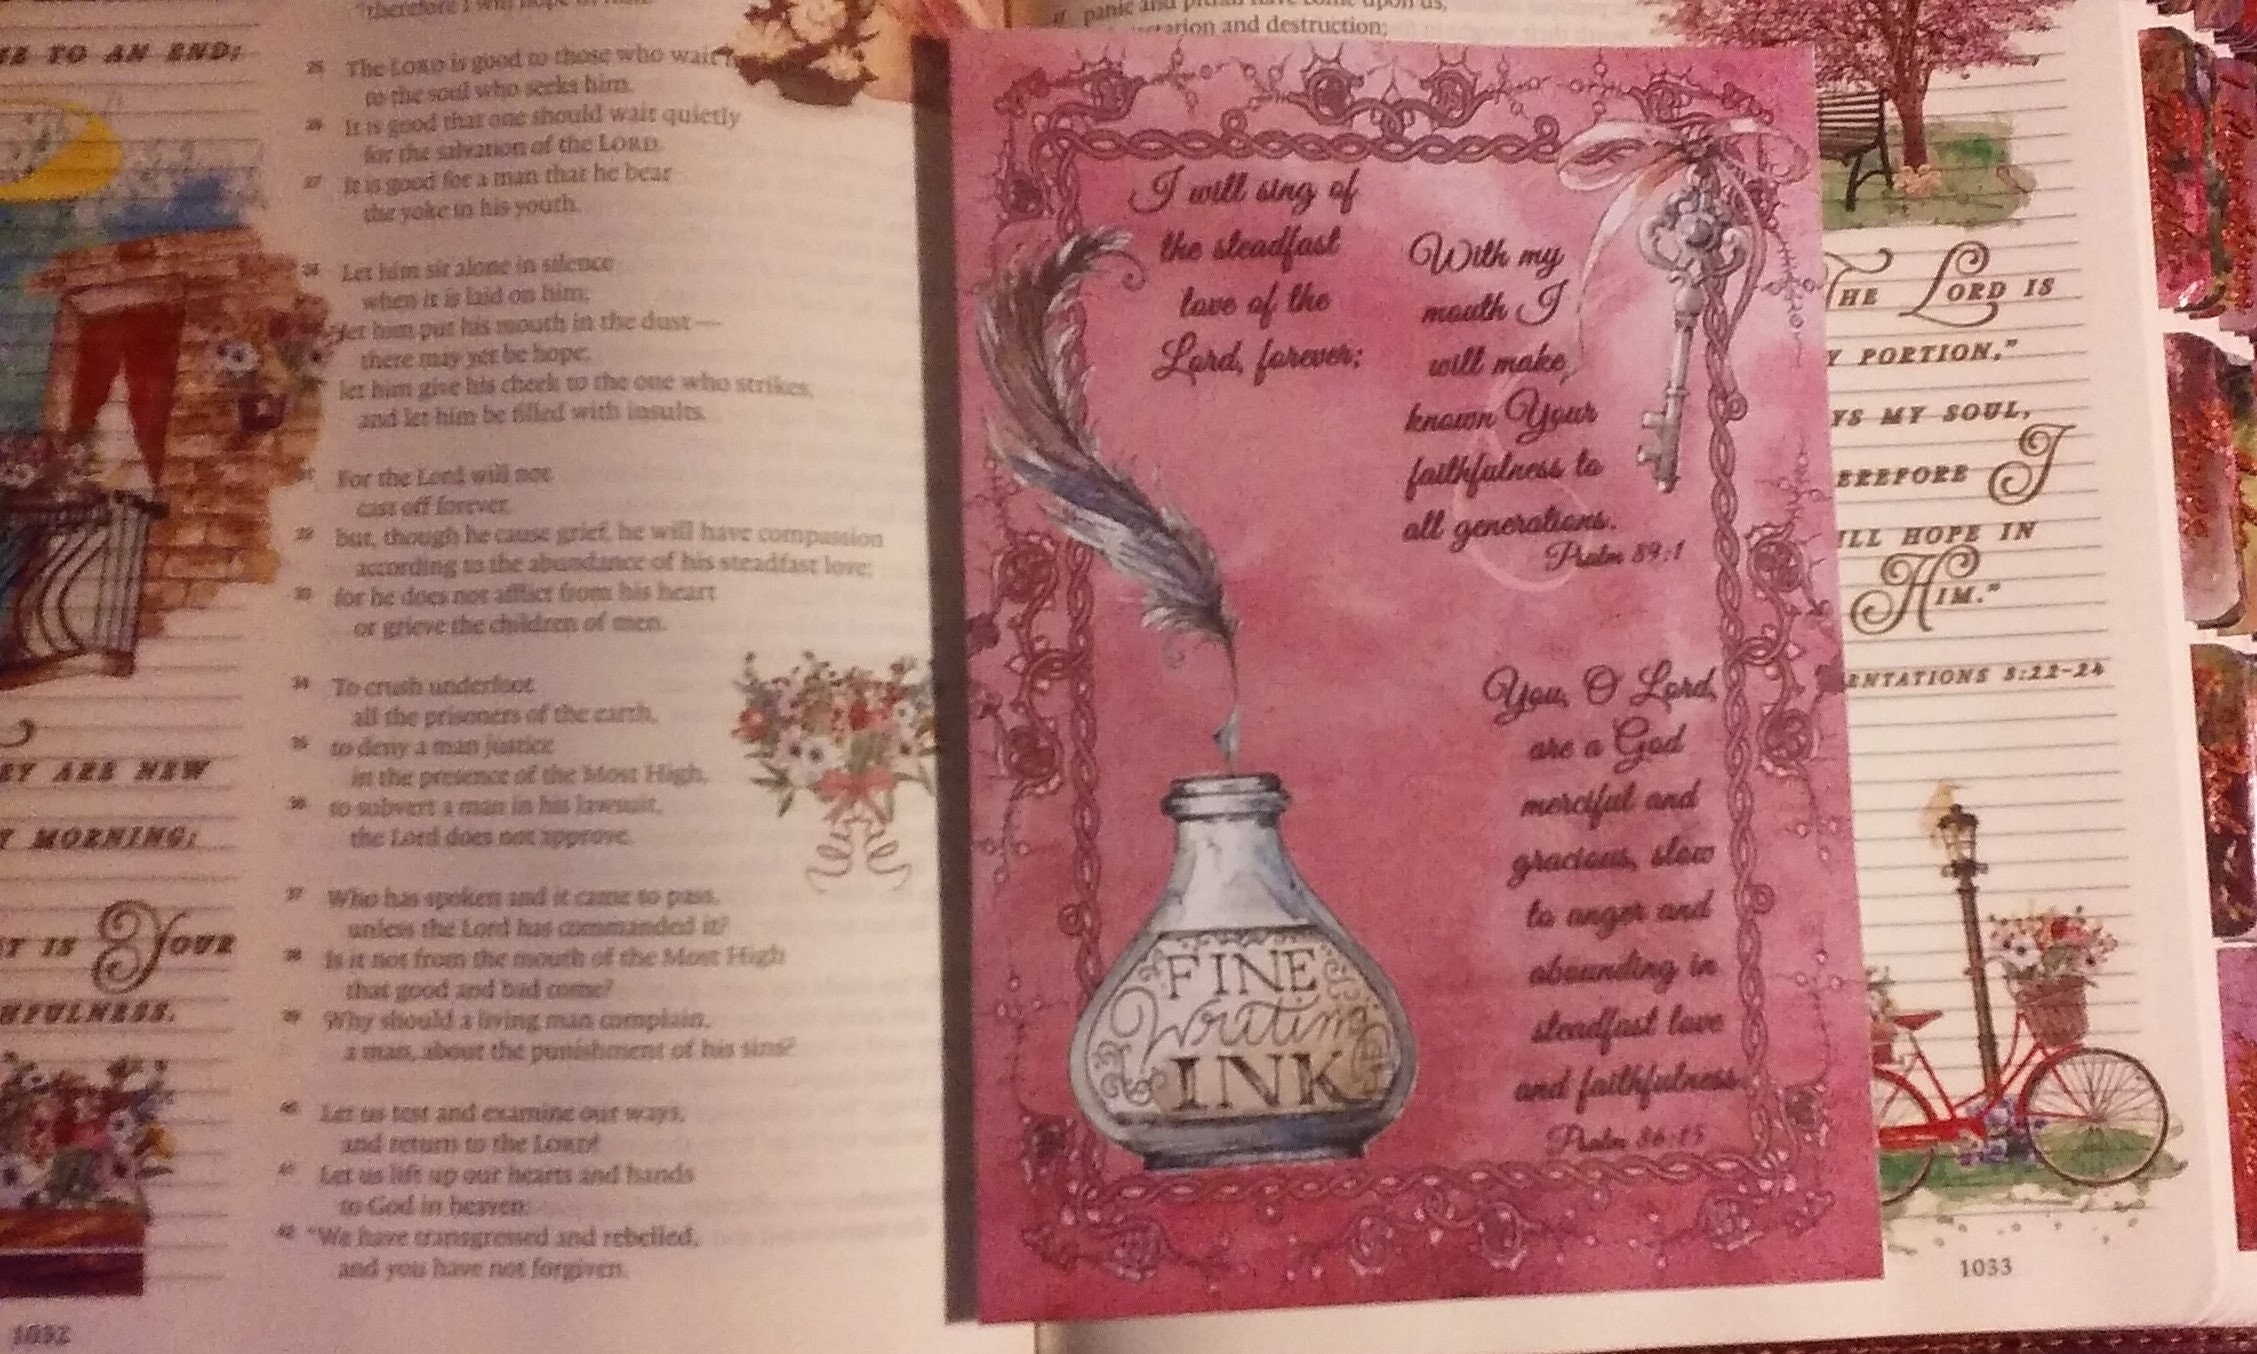 ZE TO AN END;
EY ARE NEW
Y MORNING;
T IS YOUR
HFULNESS.
1032
"therefore I will hope in him."
25 The LORD is good to those who wait
to the soul who seeks him.
26 It is good that one should wait quietly
for the salvation of the LORD.
27 It is good for a man that he bear
the yoke in his youth.
28 Let him sit alone in silence
when it is laid on him;
let him put his mouth in the dust—
there may yet be hope;
let him give his cheek to the one who strikes,
and let him be filled with insults.
31 For the Lord will not
cast off forever,
32 but, though he cause grief, he will have compassion
according to the abundance of his steadfast love;
33 for he does not afflict from his heart
or grieve the children of men.
34 To crush underfoot
all the prisoners of the earth,
35 to deny a man justice
in the presence of the Most High,
36 to subvert a man in his lawsuit,
the Lord does not approve.
37 Who has spoken and it came to pass,
unless the Lord has commanded it?
38 Is it not from the mouth of the Most High
that good and bad come?
39 Why should a living man complain,
a man, about the punishment of his sins?
40 Let us test and examine our ways,
and return to the LORD!
41 Let us lift up our hearts and hands
to God in heaven:
42 "We have transgressed and rebelled,
and you have not forgiven.
47 panic and pitfall have come upon us,
and destruction;
I will sing of
the steadfast
love of the
Lord, forever;
With my
mouth I
will make
known Your
faithfulness to
all generations.
Psalm 89:1
You, O Lord,
are a God
merciful and
gracious, slow
to anger and
abounding in
steadfast love
and faithfulness.
Psalm 86:15
FINE
Writing
INK
THE LORD IS
Y PORTION,"
YS MY SOUL,
EREFORE I
ILL HOPE IN
HIM."
ENTATIONS 3:22-24
1033